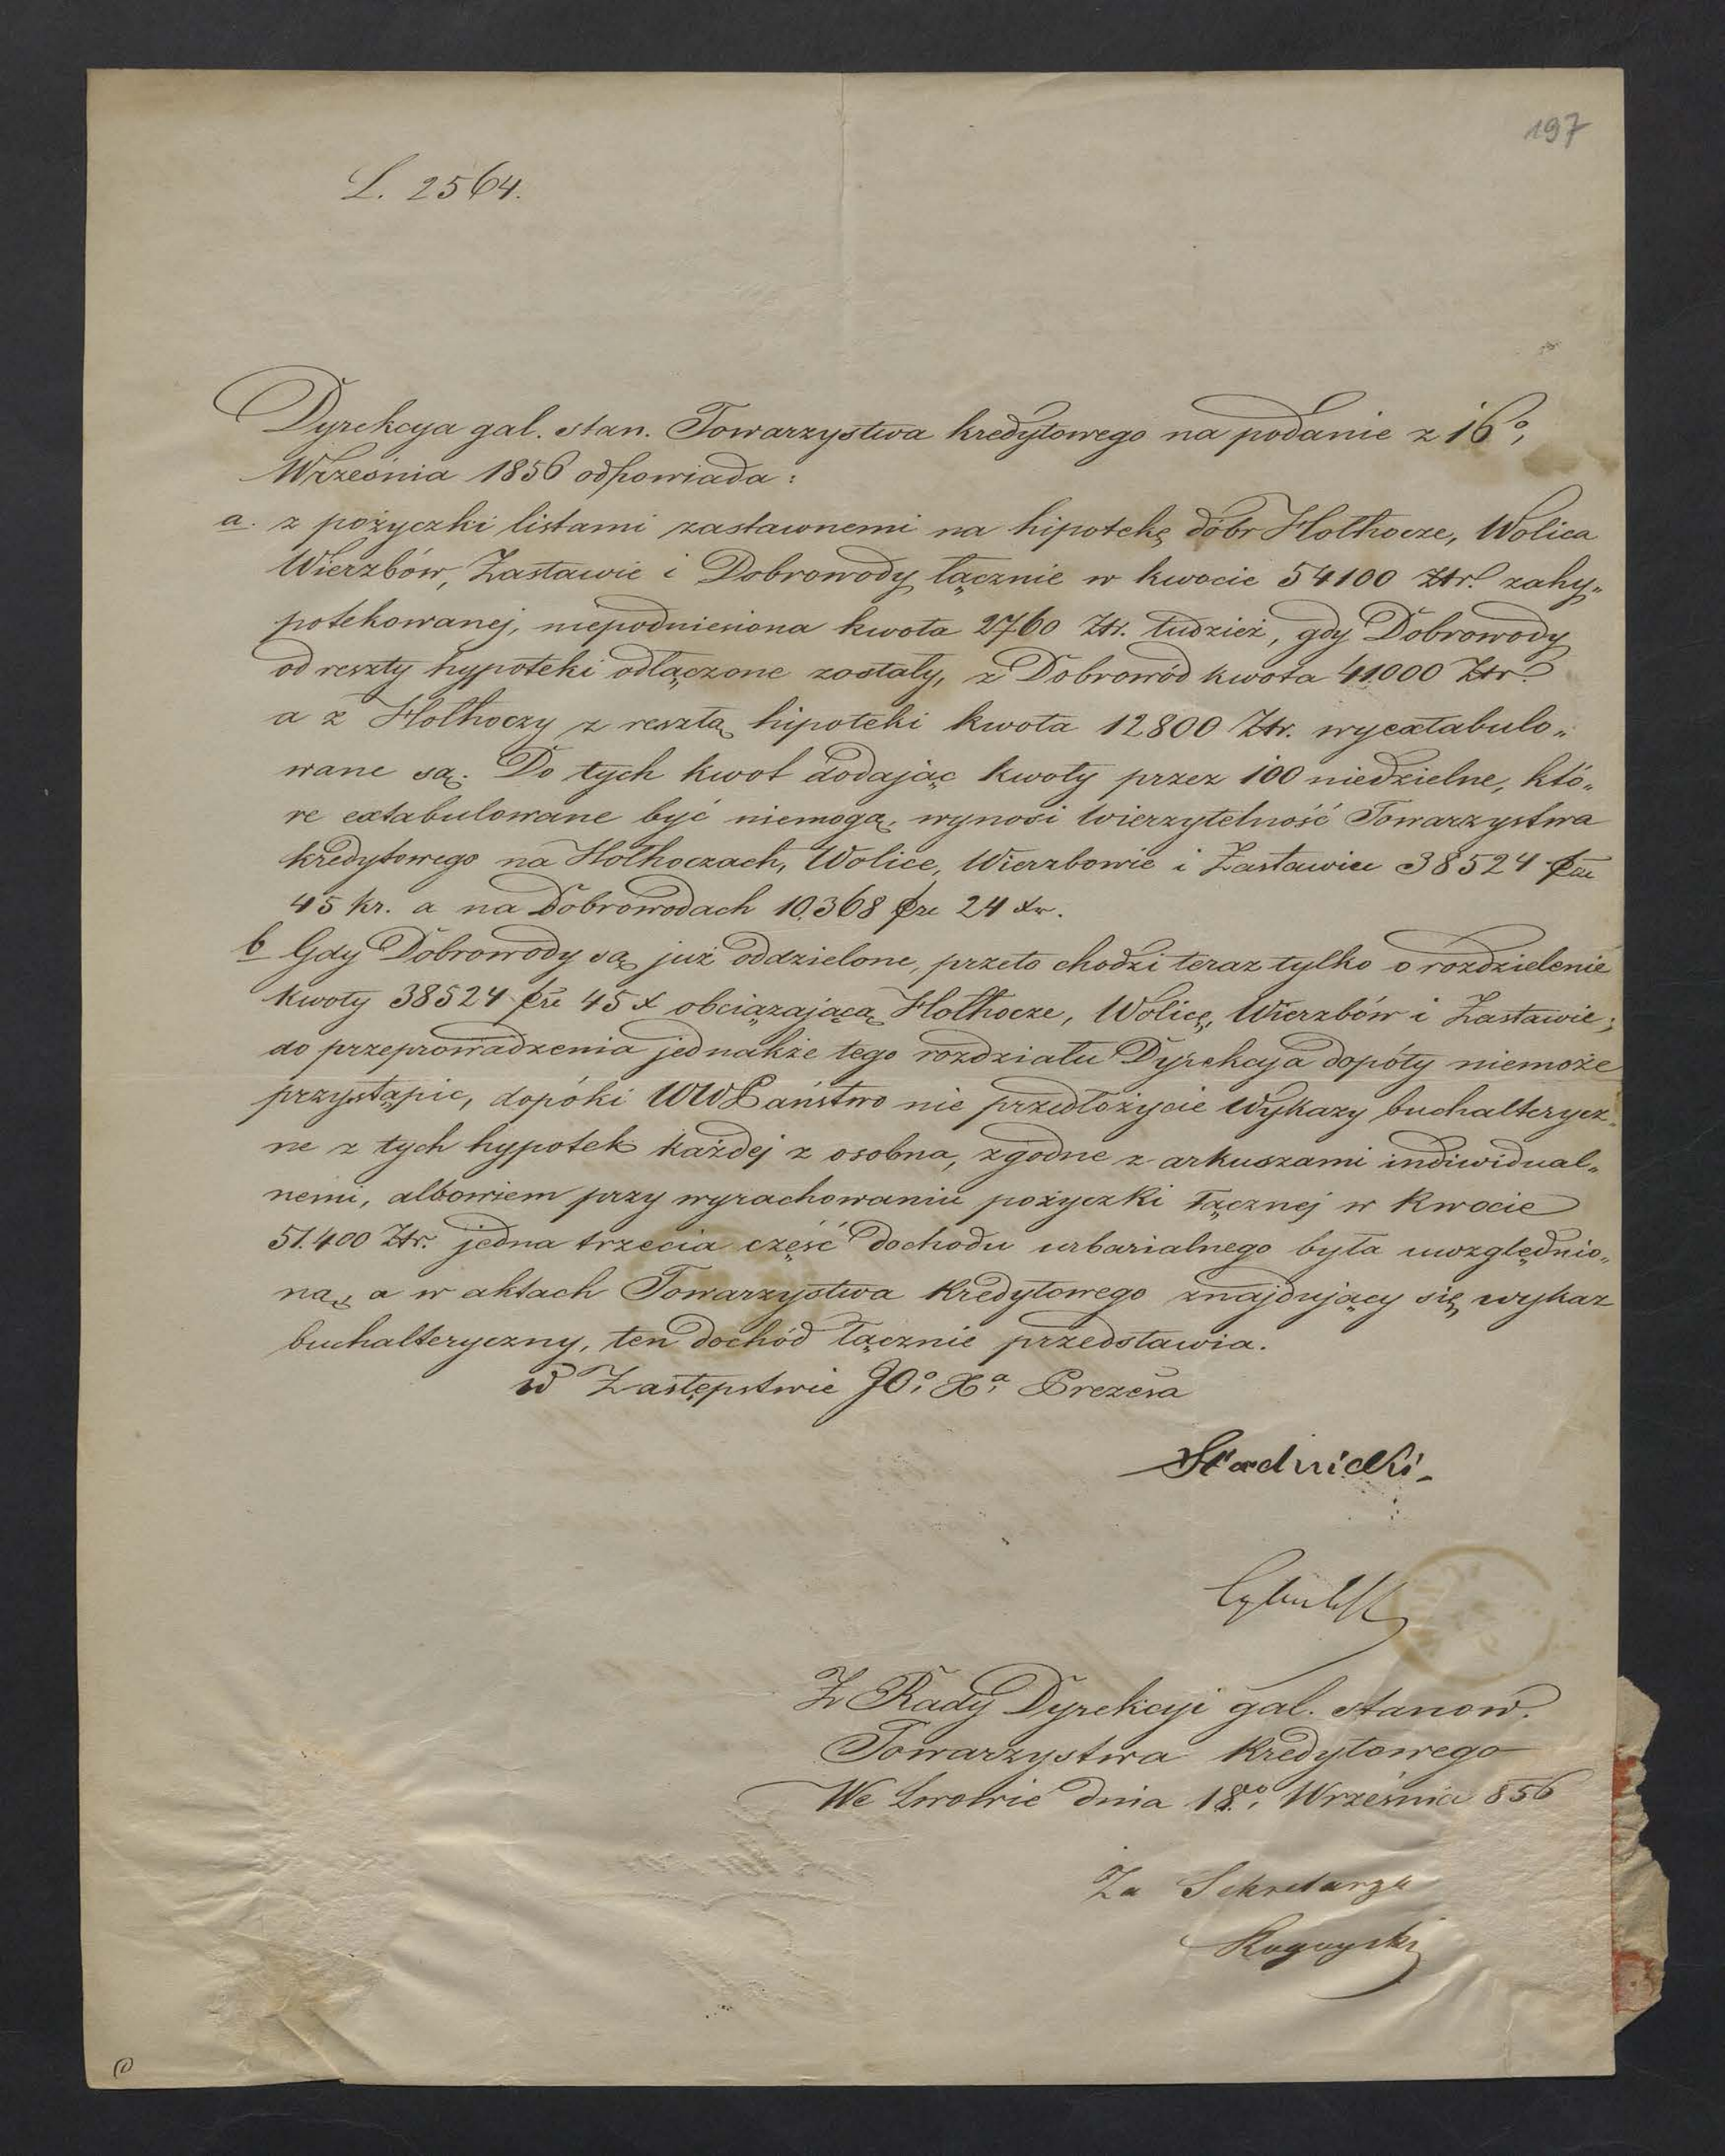 197
L. 2564.
Dyrekcya gal. stan. Towarzystwa kredytowego na podanie z 16º,
Września 1856 odpowiada:
a. z pożyczki listami zastawnemi na hipotekę dóbr Hołhocze, Wolica
Wierzbów, Zastawie i Dobrowody łącznie w kwocie 54100 Ztr. zahy„
potekowanej, niepodniesiona kwota 2760 Ztr. tudzież, gdy Dobrowody
od reszty hypoteki odłączone zostały, z Dobrowód kwota 41000 Ztr.
a z Hołhoczy z resztą hipoteki kwota 12800 Ztr. wyextabulo„
wane są. Do tych kwot dodając kwoty przez 100 niedzielne, któ„
re extabulowane być niemogą, wynosi wierzytelność Towarzystwa
kredytowego na Hołhoczach, Wolice, Wierzbowie i Zastawiu 38524
45 kr. a na Dobrowodach 10.368 24 xr.
b Gdy Dobrowody są już oddzielone, przeto chodzi teraz tylko o rozdzielenie
kwoty 38524 45 x obciążającą Hołhocze, Wolicę, Wierzbów i Zastawie;
do przeprowadzenia jednakże tego rozdziału Dyrekcya dopóty niemoże
przystąpic, dopóki WW Państwo nie przedłożycie wykazy buchalterycz„
ne z tych hypotek każdej z osobna, zgodne z arkuszami indiwidual„
nemi, albowiem przy wyrachowaniu pożyczki łącznej w kwocie
51.400 Ztr. jedna trzecia część dochodu urbarialnego była uwzględnio„
ną, a w aktach Towarzystwa kredytowego znajdujący się wykaz
buchalteryczny, ten dochód łącznie przedstawia.
W Zastępstwie JO: Xª Prezesa
Stadnicki
Z Rady Dyrekcyi gal. stanow.
Towarzystwa kredytowego
We Lwowie dnia 18go, Września 856
Za Sekretarza